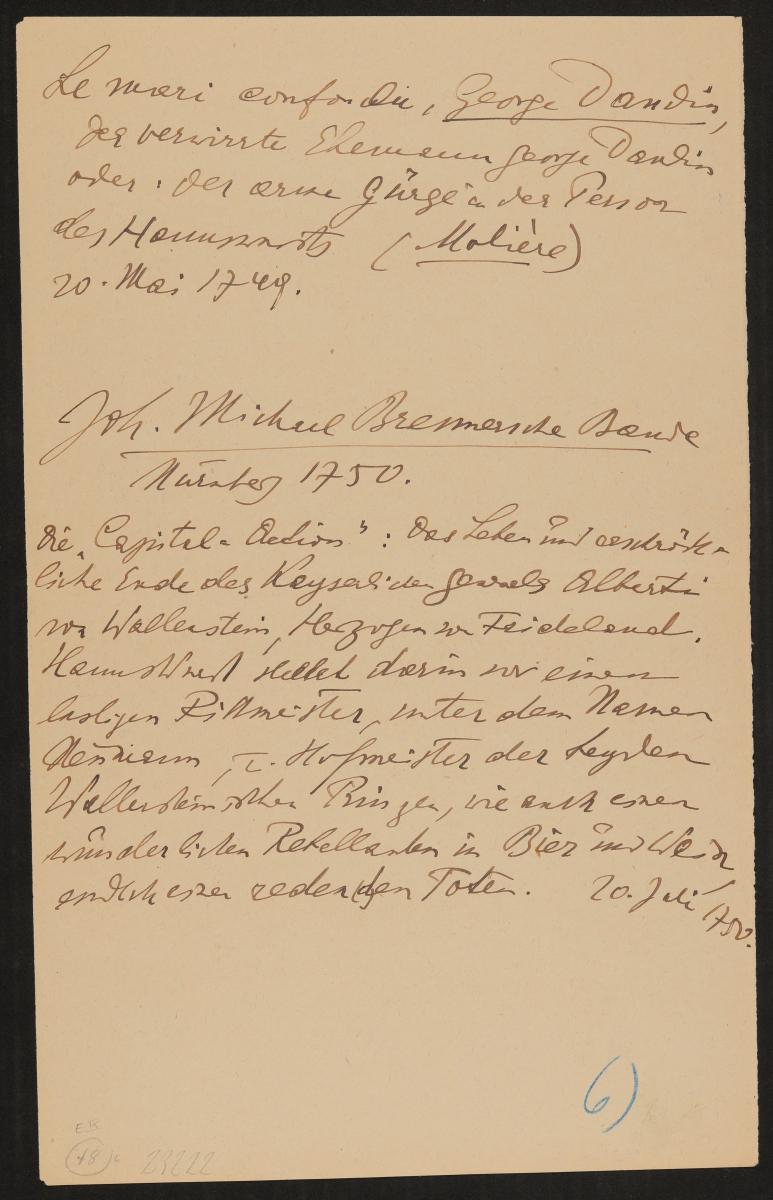 Le mari confondu, George Dandin,
der verwirrte Ehemann George Dandin
oder: der arme Gürge in der Person
des Hannswursts (Molière)
20. Mai 1749.
Joh. Michael Brennersche Bande
Nürnberg 1750.
die „Capital-Action": Das Leben und erschröck-
liche Ende des Kayserlichen Generals Alberti
von Wallenstein, Herzogen von Friedeland.
Hannswurst stellet darin vor einen
lustigen Rittmeister, unter dem Namen
Neümann, I. Hofmeister der beyden
Wallensteinischen Prinzen, wie auch einen
wunderlichen Rebellanten in Bier und Wein,
endlich einen redenden Toten. 20. Juli 1750.
6)
E.B.
48
23222